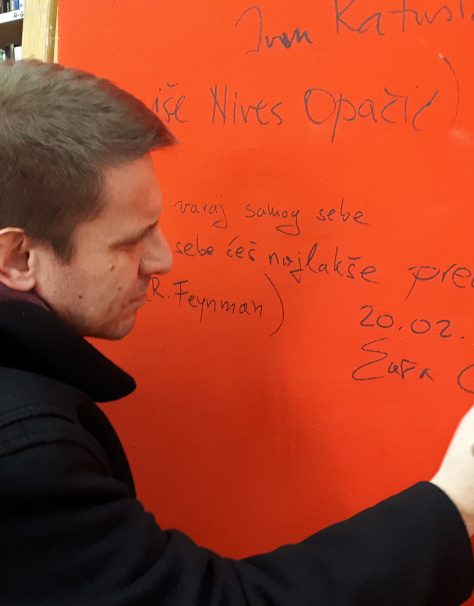 Ivan Katuš
iše Nives Opačić)
varaj samog sebe
sebe ćeš najlakše
(R. Feynman)
20.02.